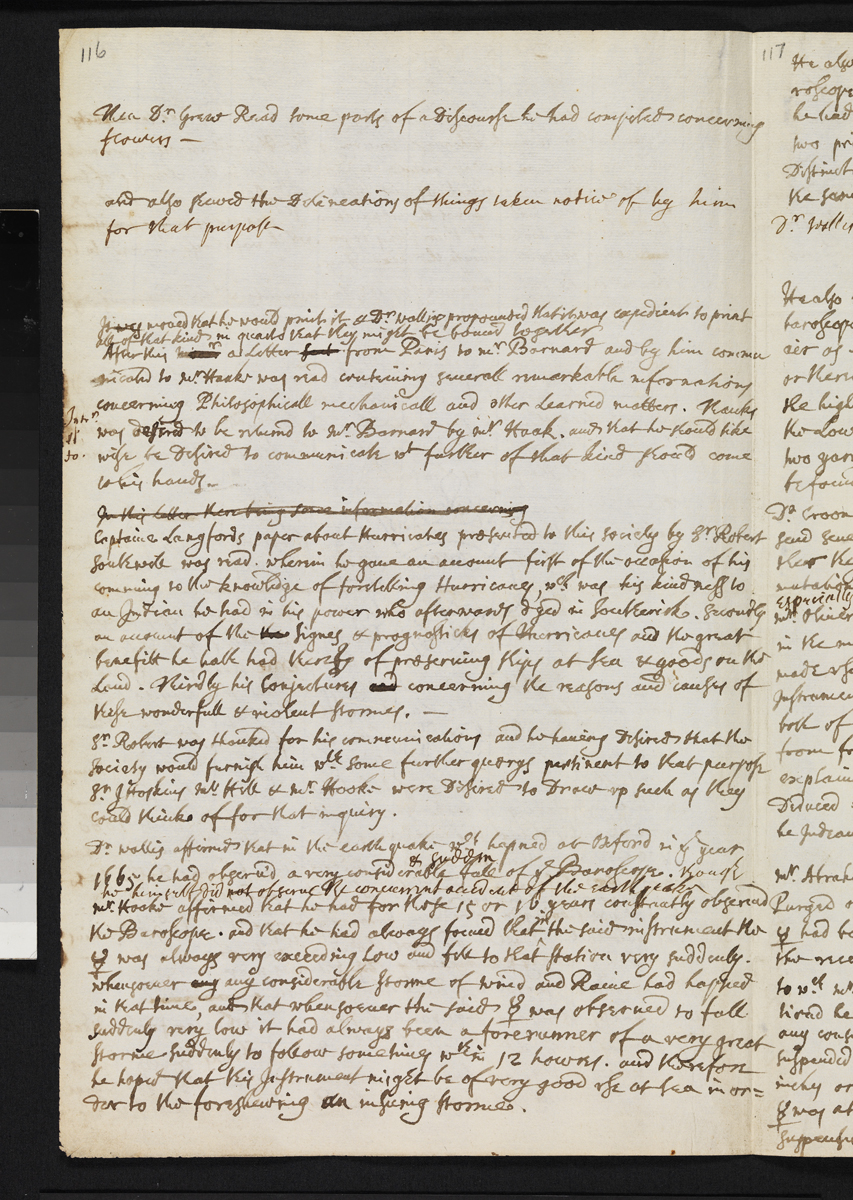 116
Then Dr Grew Read some parts of a Discourse he had compiled concerning
flowers —
and also shewd the Delineations of things taken notice of by him
for that purpose
It was moued that he would print it & Dr wallis propounded that it was expedient to print
all of that kind in quarto that they might be bound together
After this a Letter from Paris to mr Barnard and by him commu
nicated to Mr Haake was read contining seuerall remarkable Informations
concerning Philosophicall mechanicall and other Learned matters. Thanks
was desired to be returnd to Mr Barnard by mr Haak. and that he should like
wise be Desired to communicate wt further of that kind should come
to his hands.
In this letter there being some information concerning
Captaine Langfords paper about Hurricanes presented to this society by Sr Robert
Southwell was read. wherein he gaue an account first of the occasion of his
comming to the knowledge of foretelling Hurricanes, wch was his kindness to
an Indian he had in his power who afterwards dyed in Southwark. Secondly
an account of the the signes & prognosticks of Hurricanes and the great
benefitt he hath had thereby of preserving ships at sea & goods on the
Land. Thirdly his Conjectures and concerning the reasons and causes of
these wonderfull & violent stormes. —
Sr Robert was thanked for his communications and he hauing Desired that the
society would furnish him wth some further querys pertinent to that purpose
Sr J Hoskins Mr Hill & Mr Hooke were Desired to Draw vp such as they
could thinke of for that inquiry.
Dr wallis affirmd that in the earthquake wch hapned at Oxford in ye year
1665 he had obserud a very considerable & sudden fall of ye Baroscope. though
he himself did not obserue the concurrent accident of the earthquake
mr Hooke affirmed that he had for these 15 or 16 years constantly obserued
the Baroscope. and that he had always found that in the said instrument the
☿ was always very exceeding low and fell to that station very suddenly.
whensoeuer any any considerable storme of wind and Raine had hapned
in that time, and that whensoeuer the said ☿ was obserued to fall
suddenly very low it had always been a forerunner of a very great
storme suddenly to follow sometimes wthin 12 howres. and therefore
he hoped that this Instrument might be of very good vse at sea in or=
der to the foreshewing an insuing storme.
117
He also
roscope
he had
two pri
Distinct
the same
Dr Wallis
He also
baroscope
air as
or ther
the high
the Low
two yar
before
Dr Croon
seu
that the
mutation
especially
mr Henr
in the m
made vse
Instrumen
both of
from fo
explain
Deduced
he Judica
mr Abraha
Purged
☿ had be
the rece
to wch mr
tioned he
any cons
suspended
inches or
☿ was at
suspensi